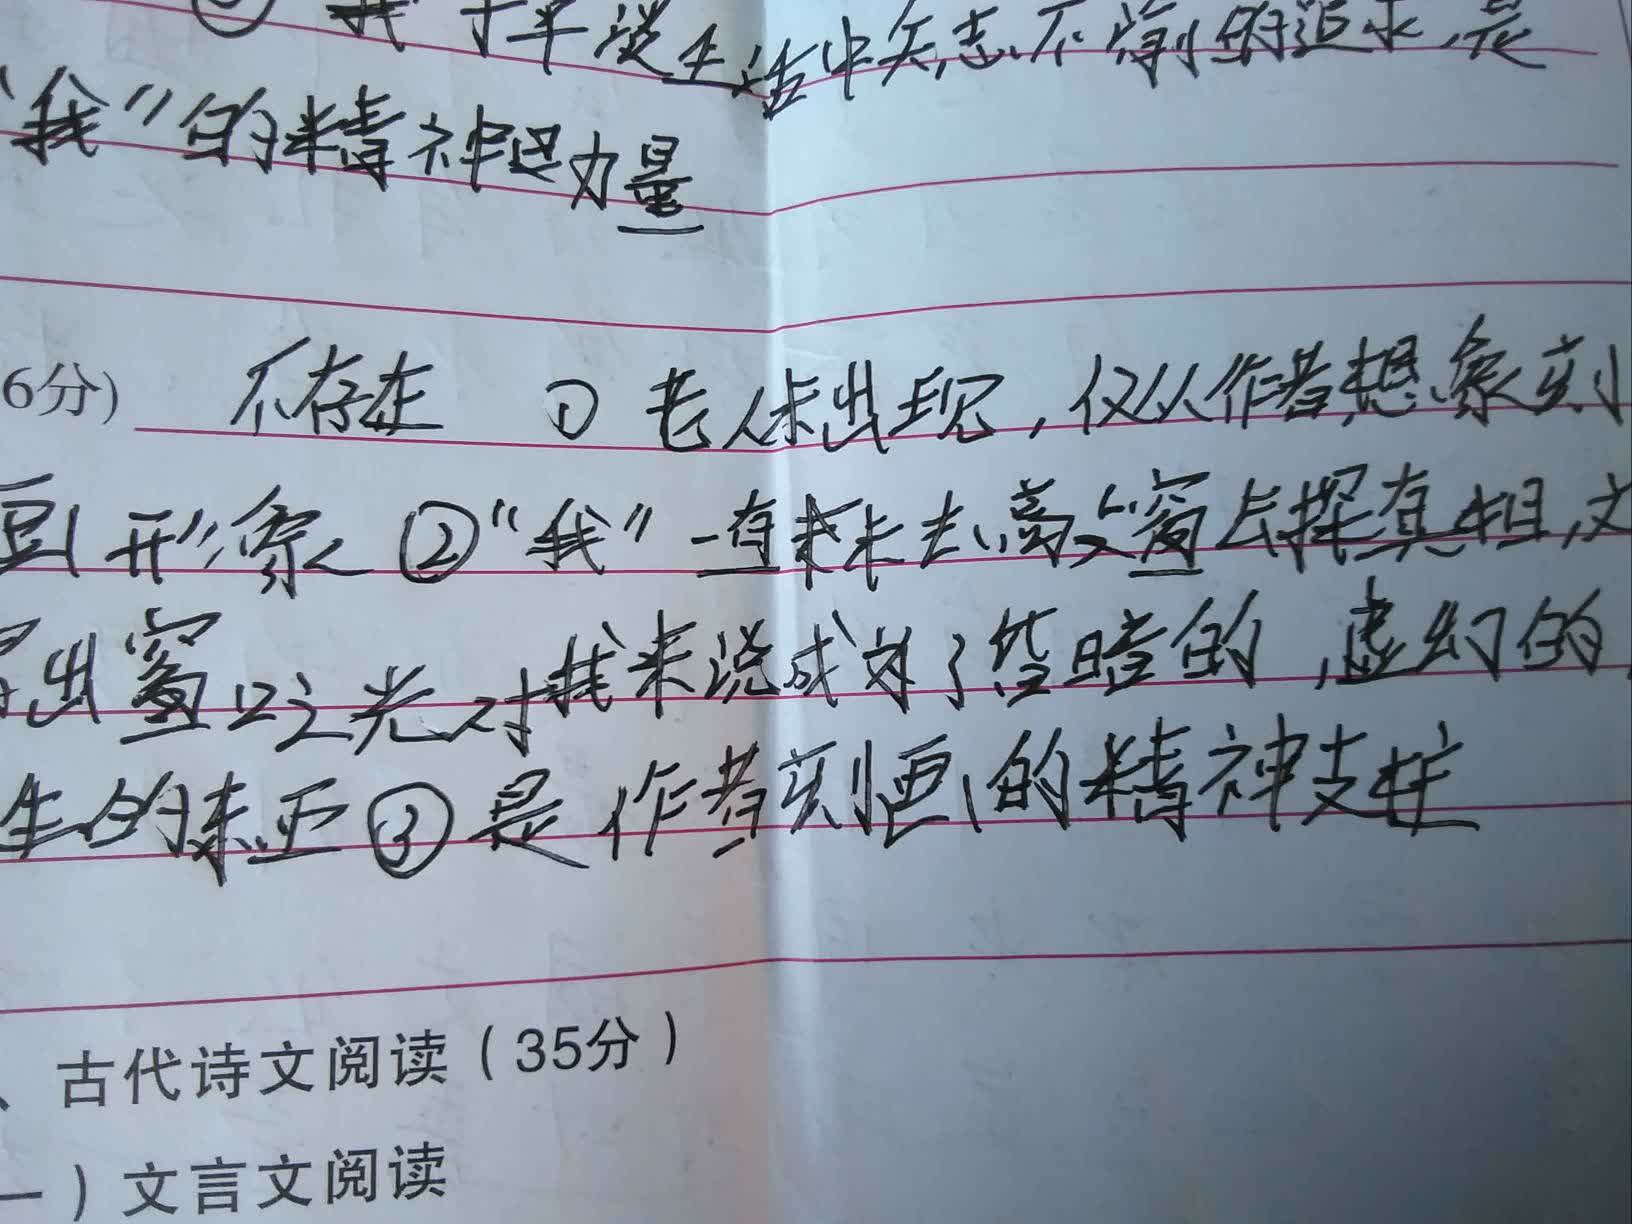 ② 我于平淡生活中矢志不渝的追求,是
"我"的精神力量
6分) 不存在 ① 老人未出现,仅从作者想象刻
到形象 ②"我"一直未去高文窗去探真相,文
出窗口之光对我来说成为了答暗的,虚幻的,
生的 ③ 是作者刻画的精神支柱
、古代诗文阅读(35分)
一)文言文阅读